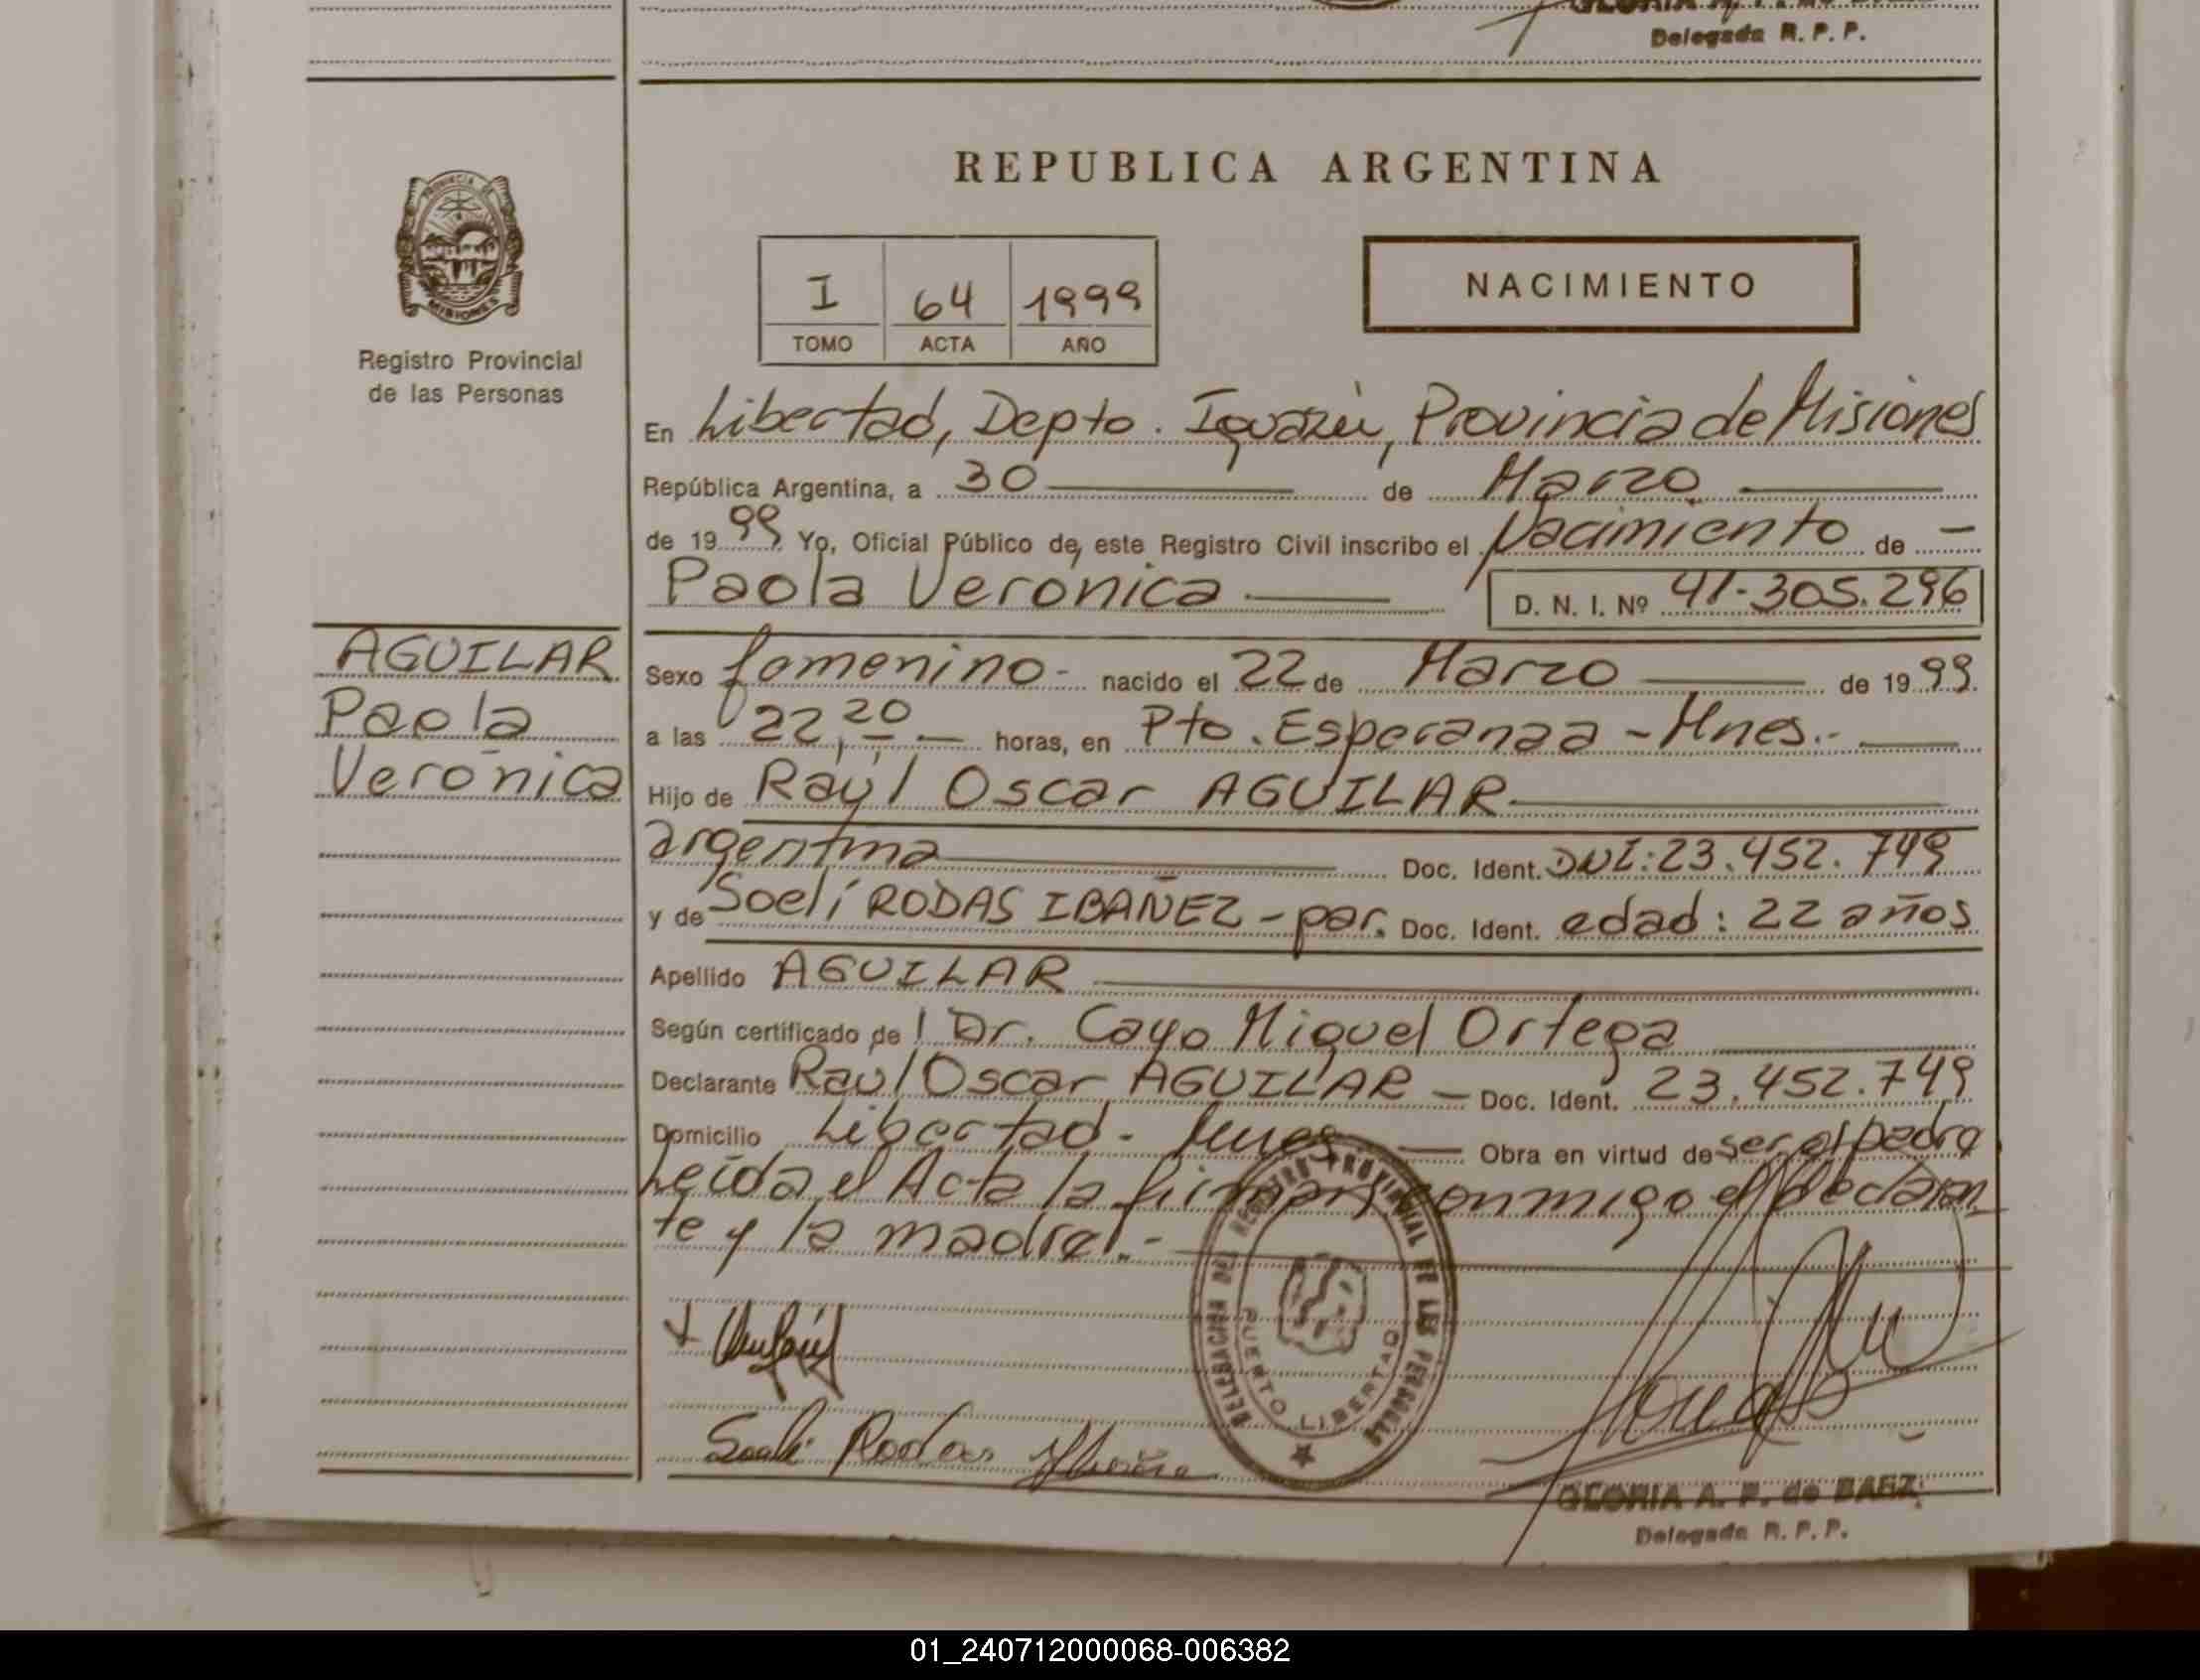 Delegada R. P. P.
PROVINCIA DE
MISIONES
Registro Provincial
de las Personas
REPUBLICA ARGENTINA
I 64 1999
TOMO ACTA AÑO
NACIMIENTO
En Libertad, Depto. Iguazú, Provincia de Misiones
República Argentina, a 30 de Marzo
de 1999 Yo, Oficial Público de este Registro Civil inscribo el Nacimiento de -
Paola Verónica D. N. I. Nº 41.305.296
AGUILAR
Paola
Verónica
Sexo femenino - nacido el 22 de Marzo de 1999.
a las 22,20 horas, en Pto. Esperanza - Mnes.-
Hijo de Raúl Oscar AGUILAR
argentina Doc. Ident. DNI: 23.452.749
y de Soelí RODAS IBAÑEZ - par. Doc. Ident. edad: 22 años
Apellido AGUILAR
Según certificado del Dr. Cayo Miguel Ortega
Declarante Raul Oscar AGUILAR - Doc. Ident. 23.452.749
Domicilio Libertad - Mnes Obra en virtud de ser el padre
Leída el Acta la firman conmigo el declaran
te y la madre.-
DELEGACION DEL REGISTRO PROVINCIAL DE LAS PERSONAS
PUERTO LIBERTAD
Soeli Rodas Ibañez
GLORIA A. P. de BAEZ
Delegada R. P. P.
01_240712000068-006382